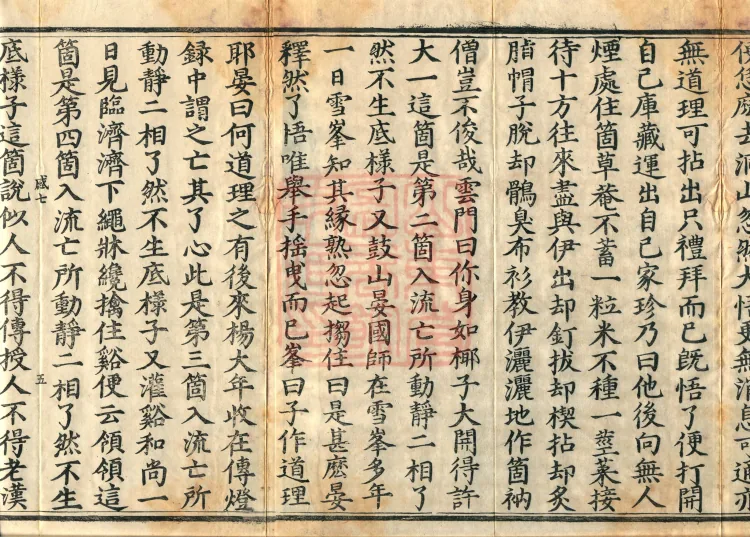 便恁麼去洞山忽然大悟更無消息可通亦
無道理可拈出只禮拜而已既悟了便打開
自己庫藏運出自己家珍乃曰他後向無人
煙處住箇草菴不蓄一粒米不種一莖菜接
待十方往來盡與伊出却釘拔却楔拈却炙
脂帽子脫却鶻臭布衫教伊灑灑地作箇衲
僧豈不俊哉雲門曰你身如椰子大開得許
大一這箇是第二箇入流亡所動靜二相了
然不生底樣子又鼓山晏國師在雪峯多年
一日雪峯知其緣熟忽起搊住曰是甚麽晏
釋然了悟唯舉手搖曳而已峯曰子作道理
耶晏曰何道理之有後來楊大年收在傳燈
録中謂之亡其了心此是第三箇入流亡所
動靜二相了然不生底樣子又灌谿和尚一
日見臨濟濟下繩牀纔擒住谿便云領領這
箇是第四箇入流亡所動靜二相了然不生
咸七 五
底樣子這箇說似人不得傳授人不得老漢